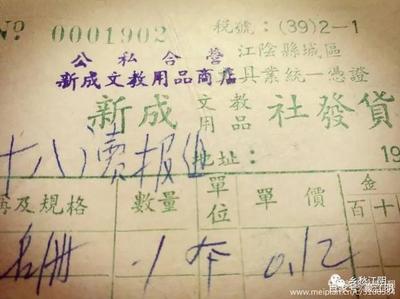 No 0001902 稅號：(39)2-1
公私合營 江陰縣城區
新成文教用品商店 具業統一憑證
新成文教用品社發貨
十八讀报组 地址： 19
再及規格 數量 單位 單價 金
百十
名册 1 本 0.12
乡愁江阴
www.meipian